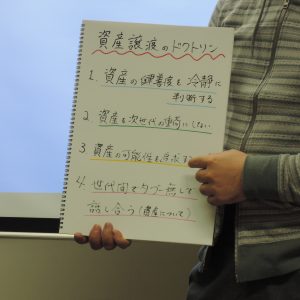 資産譲渡のドクトリン
1 資産の 度を 冷静に
判断する
2 資産を次世代の にしない
3 資産の可能性を す
4. 世代間でタブー無しで
話し合う(資産について)